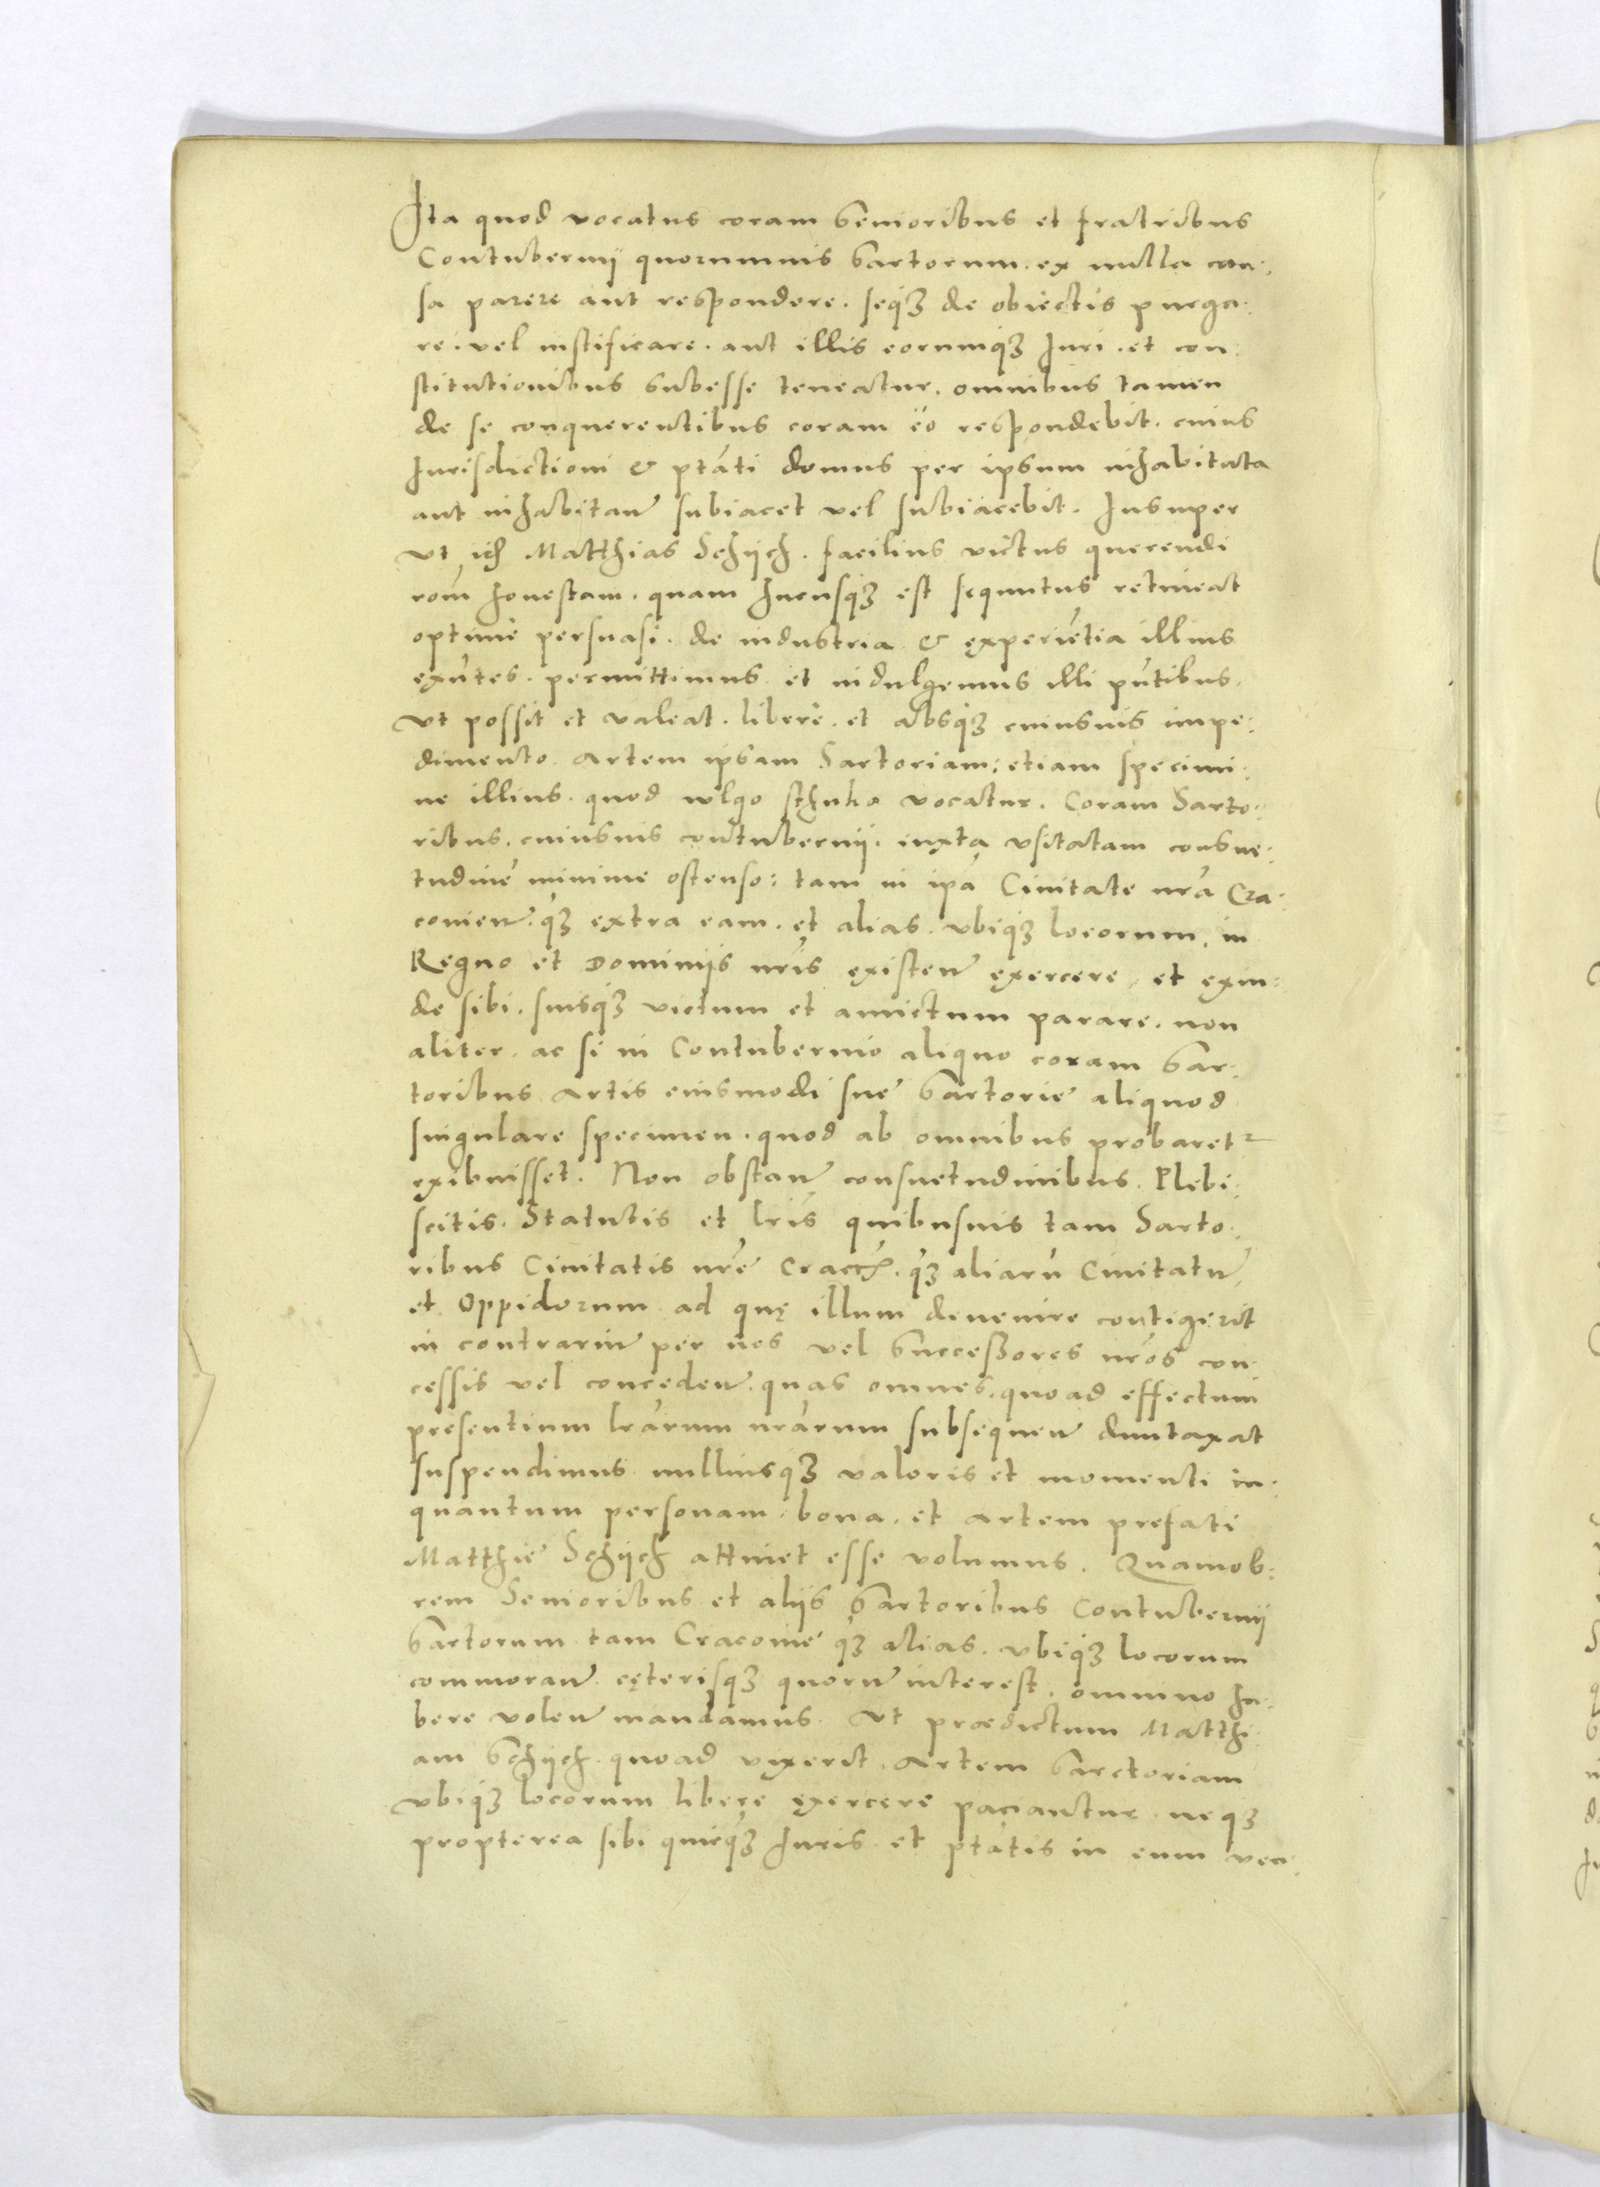 Ita quod vocatus coram Senioribus et fratribus
Contubernij quorumuis Sartorum. ex nulla cau:
sa parere aut respondere. seq₃ de obiectis purga:
re. vel iustificare. aut illis eorumq₃ Iuri. et con:
stitutionibus subesse teneatur. omnibus tamen
de se conquerentibus coram eo respondebit. cuius
Iurisdictioni & ptāti domus per ipsum inhabitata
aut inhabitan̄ subiacet vel subiacebit. Insuper
vt id̄ Matthias Schijch. facilius victus querendi
rōm honestam. quam hucusq₃ est sequutus retineat
optime persuasi. de industria & experiētia illius
exn̄tes. permittimus et indulgemus illi pn̄tibus.
Vt possit et valeat. libere. et absq₃ cuiusuis impe:
dimento. Artem ipsam Sartoriam: etiam specimi:
ne illius. quod wlgo sthuka vocatur. Coram Sarto:
ribus. cuiusuis contubernij. iuxta vsitatam consue:
tudinē minime ostenso: tam in ipā Ciuitate nrā Cra:
couien̄. q₃ extra eam. et alias. vbiq₃ locorum. in
Regno et Dominijs nrīs existen̄ exercere, et exin:
de sibi. suisq₃ victum et amictum parare. non
aliter. ac si in Contubernio aliquo coram Sar:
toribus Artis eiusmodi sue Sartorie aliquod
singulare specimen. quod ab omnibus probaret²
exibuisset. Non obstan̄ consuetudinibus. Plebi:
scitis. Statutis et lrīs quibusuis tam Sarto:
ribus Ciuitatis nrē Cracc̄. q₃ aliarū Ciuitatū,
et Oppidorum ad quę illum diuenire contigerit
in contrariū per nos vel Successores nrōs con:
cessis vel conceden̄. quas omnes. quoad effectum
presentium lrārum nrārum subsequen̄ duntaxat
suspendimus nulliusq₃ valoris et momenti in:
quantum personam. bona. et artem prefati
Matthie Schijch attinet esse volumus. Quamob:
rem Senioribus et alijs Sartoribus Contubernij
Sartorum tam Cracouie q₃ alias. vbiq₃ locorum
commoran̄. cęterisq₃ quorū interest. omnino ha:
bere volen̄ mandamus. Vt prædictum Matthi:
am Schijch. quoad vixerit. Artem Sarctoriam
vbiq₃ locorum libere exercere paciantur. neq₃
propterea sibi quicq₃ Iuris et ptātis in eum ven: